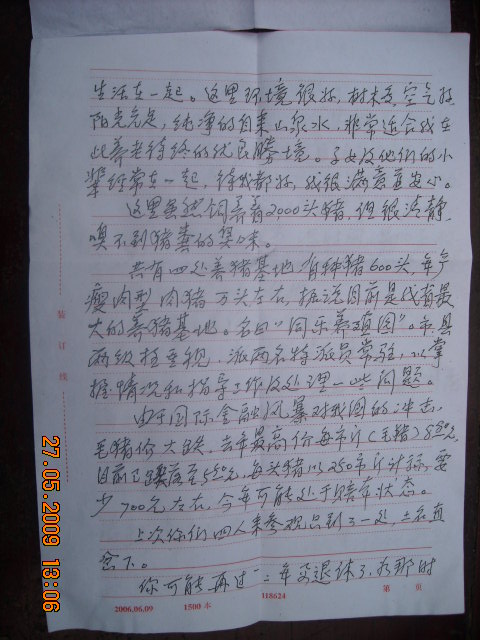 生活在一起。这里环境很好，树木多，空气好
阳光充足，纯净的自来山泉水，非常适合我在
此养老待终的优良胜境。子女及他们的小
辈经常在一起，待我都好，我很满意並安心。
这里虽然饲养着2000头猪，但很清静
嗅不到猪粪的臭味。
共有四处养猪基地，有种猪600头，年产
瘦肉型肉猪万头左右，据说目前是我省最
大的养猪基地。名曰“同乐养殖园”。市县
两级挂重视，派两名特派员常驻，以掌
握情况和指导工作及处理一些问题。
由于国际金融风暴对我国的冲击，
毛猪价大跌，去年最高价每市斤(毛猪)
目前已跌落至 每头猪以250市斤计标，要
少700元左右，今年可能处于赔本状态。
上次你们四人来参观只到了一处，
你可能再过一二年 退休了，
装订线
2006.06.09 1500本 118624 第 页
27.05.2009 13:06